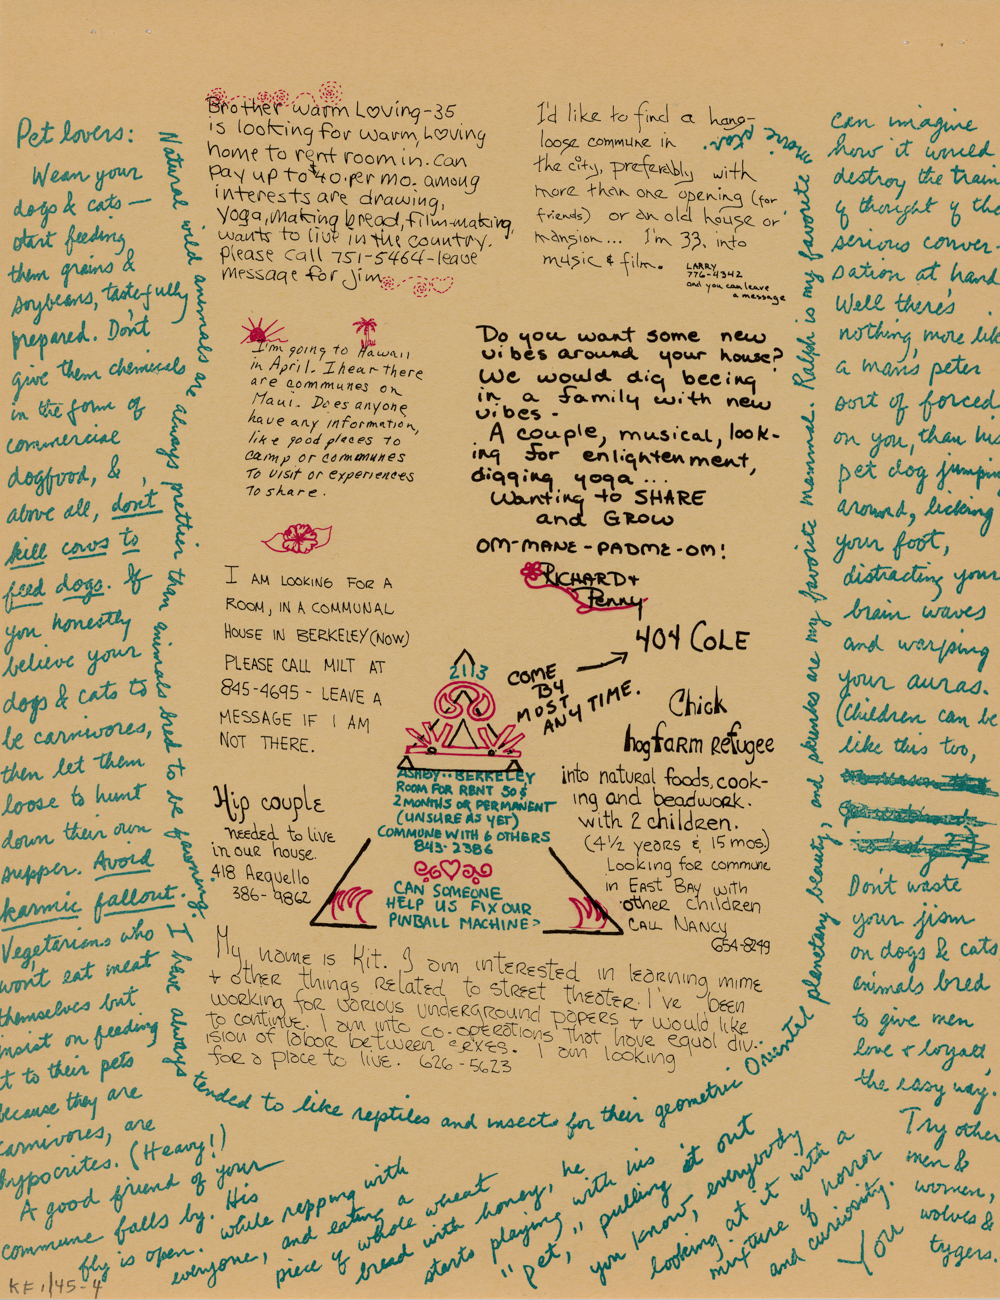 Brother warm Loving-35
is looking for warm, Loving
home to rent room in. can
pay up to $40. per mo. among
interests are drawing,
yoga, making bread, film-making,
wants to live in the country.
please call 751-5464-leave
message for Jim
I'd like to find a hang-
loose commune in
the city, preferably with
more than one opening (for
friends) or an old house or
mansion... I'm 33, into
music & film.
LARRY
776-4342
and you can leave
a message
I'm going to Hawaii
in April. I hear there
are communes on
Maui. Does anyone
have any information,
like good places to
camp or communes
to visit or experiences
to share.
Do you want some new
vibes around your house?
We would dig beeing
in a family with new
vibes -
A couple, musical, look-
ing for enlightenment,
digging yoga ...
Wanting to SHARE
and GROW
OM-MANE-PADME-OM!
RICHARD &
Penny
404 COLE
COME
BY
MOST
ANY TIME.
I AM LOOKING FOR A
ROOM, IN A COMMUNAL
HOUSE IN BERKELEY (NOW)
PLEASE CALL MILT AT
845-4695 - LEAVE A
MESSAGE IF I AM
NOT THERE.
2113
ASHBY·· BERKELEY
ROOM FOR RENT 50$
2 MONTHS OR PERMANENT
(UNSURE AS YET)
COMMUNE WITH 6 OTHERS
843-2386
CAN SOMEONE
HELP US FIX OUR
PINBALL MACHINE>
Chick
hogfarm refugee
into natural foods, cook-
ing and beadwork.
with 2 children.
(4½ years & 15 mos.)
Looking for commune
in East Bay with
other children
CALL NANCY
654-8249
Hip couple
needed to live
in our house.
418 Arguello
386-9862
My name is Kit. I am interested in learning mime
+ other things related to street theater. I've been
working for various underground papers + would like
to continue. I am into co-operations that have equal div-
ision of labor between sexes. I am looking
for a place to live. 626-5623
Pet lovers:
Wean your
dogs & cats —
start feeding
them grains &
soybeans, tastefully
prepared. Don't
give them chemicals
in the form of
commercial
dogfood, &,
above all, don't
kill cows to
feed dogs. If
you honestly
believe your
dogs & cats to
be carnivores,
then let them
loose to hunt
down their own
supper. Avoid
karmic fallout.
Vegetarians who
won't eat meat
themselves but
insist on feeding
it to their pets
because they are
carnivores, are
hypocrites. (Heavy!)
A good friend of your
commune falls by. His
fly is open. while rapping with
everyone, and eating a
piece of whole wheat
bread with honey, he
starts playing with his
"pet," pulling it out
you know, everybody
looking at it with a
mixture of horror
and curiosity. You
can imagine
how it would
destroy the train
of thought of the
serious conver-
sation at hand
Well there's
nothing more like
a man's peter
sort of forced
on you, than his
pet dog jumping
around, licking
your foot,
distracting your
brain waves
and warping
your auras.
(Children can be
like this too,
Don't waste
your jism
on dogs & cats
animals bred
to give men
love & loyalt
the easy way.
Try other
men &
women,
wolves &
tygers.
Natural wild animals are always prettier than animals bred to be fawning. I have always
tended to like reptiles and insects for their geometric Oriental
planetary beauty, and skunks are my favorite mammal. Ralph is my favorite
KF 1/45-4